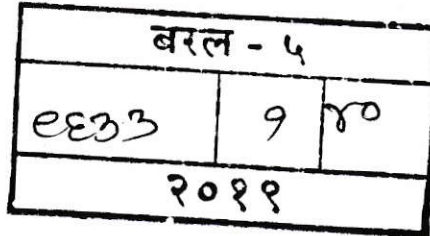 बरल - ५
९६३३ १ ४०
२०१९